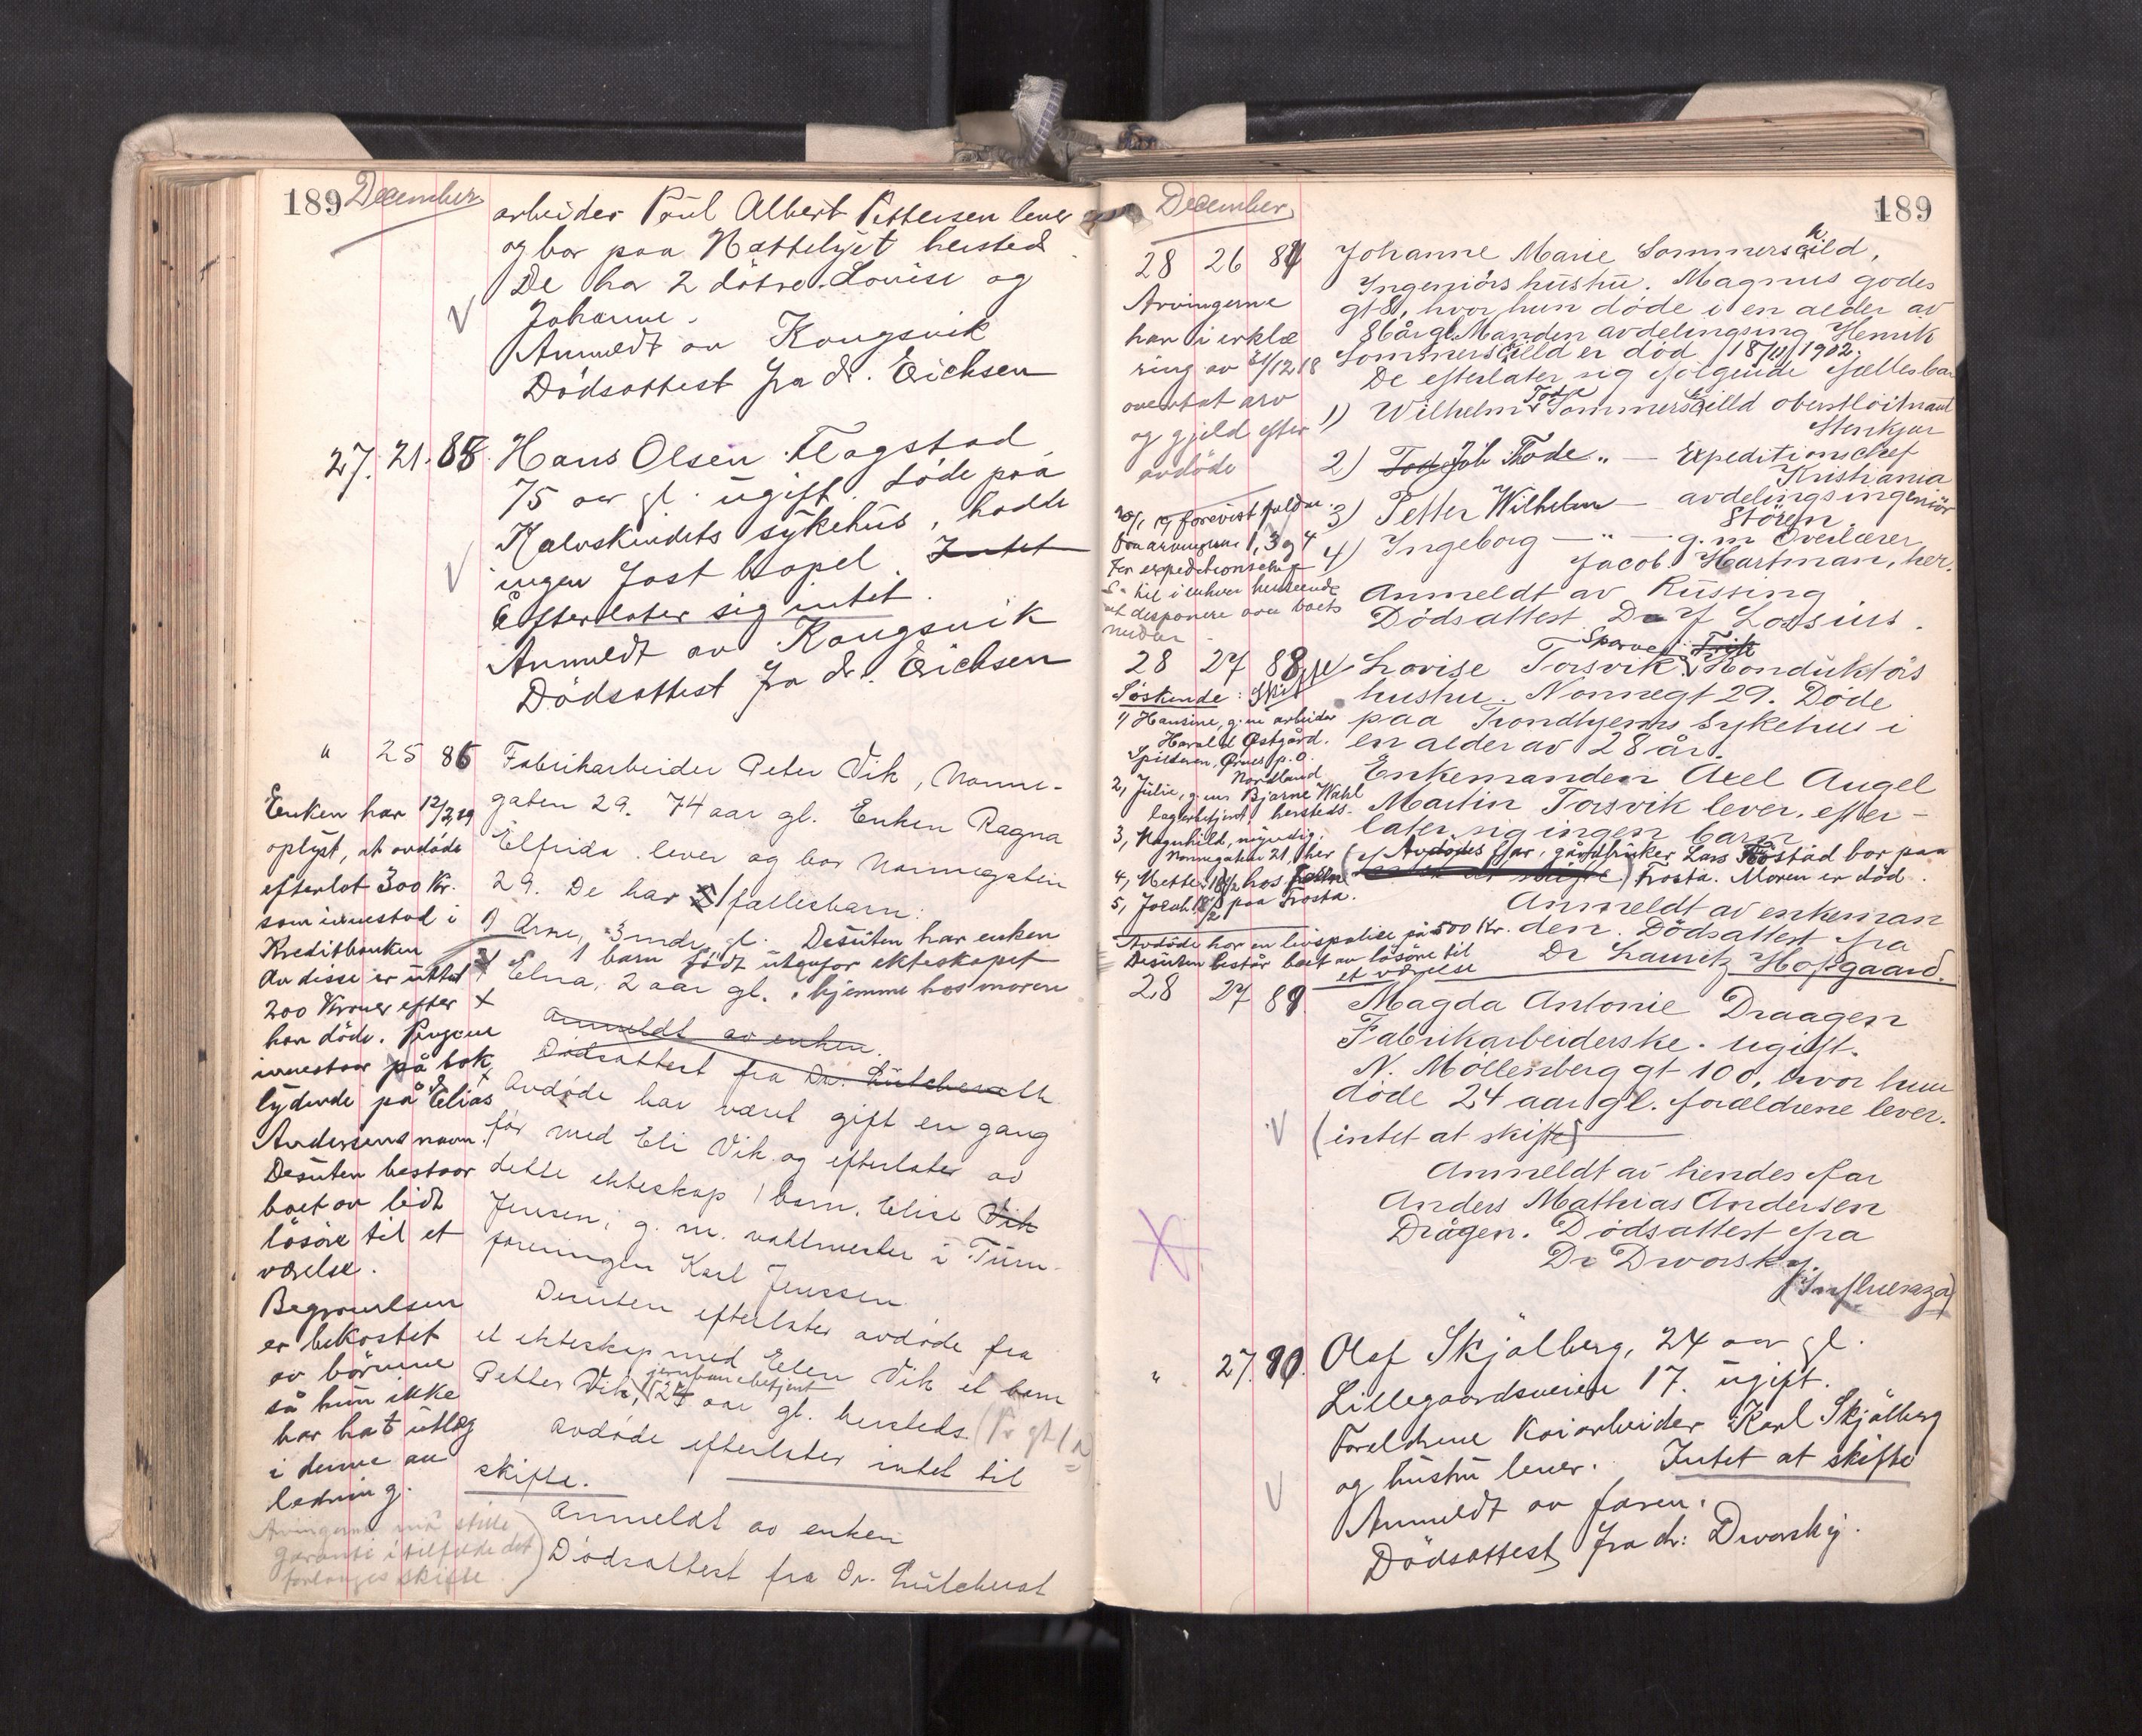 189 December
arbeider Paul Albert Pettersen lever
og bor paa Nattelyst hersteds.
De har 2 døtre Lovise og
Johanne.
Anmeldt av Kongsvik
Dödsattest fra dr. Erichsen
27. 21. 85. Hans Olsen Flagstad
75 aar gl. ugift. døde paa
Kalvskindets sykehus, hadde
ingen fast bopel. Intet
Efterlater sig intet.
Anmeldt av Kongsvik
Dödsattest fra dr. Erichsen
" 25 86 Fabrikarbeider Peter Vik, Nonne-
gaten 29. 74 aar gl. Enken Ragna
Elfrida lever og bor Nonnegaten
29. De har 1 fællesbarn:
1) Arne, 3 mdr. gl. Desuten har enken
1 barn født utenfor ekteskapet
Elna, 2 aar gl. hjemme hos moren
Anmeldt av enken.
Dödsattest fra Dr.
Avdøde har været gift en gang
før med Eli Vik og efterlater av
dette ekteskap 1 barn, Elise Vik
Jensen, g. m. vaktmester i Turn-
foreningen Karl Jenssen.
Desuten efterlater avdøde fra
et ekteskap med Elen Vik et barn
jernbanebetjent
Petter Vik, 24 aar gl. hersteds.
Avdøde efterlater intet til
skifte.
Anmeldt av enken
Dödsattest fra Dr.
Enken har 12/2 19
oplyst, at avdøde
efterlot 300 Kr.
som innestod i
Kreditbanken
Av disse er uttat
200 Kroner efter
han døde. Pengene
innestaar på bok
lydende på Elias
Andersens navn.
Desuten bestaar
boet av lidt
løsøre til et
værelse.
Begravelsen
er bekostet
av börnene
så hun ikke
har hat utlæg
i denne an
ledning.
Arvingerne må stille
garanti i tilfælde det
forlanges skifte
December 189
28 26 87 Johanne Marie Sommerschild,
Ingeniørs hustru. Magnus godes
gt 8, hvor hun døde i en alder av
86 år gl. Manden avdelingsing Henrik
Sommerschild er død 18/11 1902.
De efterlater sig følgende fællesbar
1) Wilhelm Tode Sommerschilld oberstløitnant
Stenkjær
2) Tode Joh Tode " — Expeditionschef
Kristiania
3) Petter Wilhelm — avdelingsingeniør
Støren.
4) Ingeborg — " — g. m Overlærer
Jacob Hartman, her.
Anmeldt av Russing
Dødsattest Dr J Lossius.
Arvingerne
har i erklæ
ring av 31/12 18
overtat arv
og gjeld efter
avdøde
fra arvingerne 1, 3 og 4
for expeditionschef
S. til i enhver henseende
at disponere over boets
midler
28 27 88 Lovise Torsvik, Sporvei Konduktørs
hustru. Nonnegt 29. Døde
paa Trondhjems Sykehus i
en alder av 28 år.
Enkemanden Axel Angel
Martin Torsvik lever. efter-
later sig ingen barn
Avdødes far, gårdbruker Lars bor paa
Frosta. Moren er død.
Anmeldt av enkeman
den. Dødsattest fra
Dr Lauritz Hofgaard.
Søskende: Skit
1) Hansine, g. m arbeider
Harald Østgård.
Spilderen, Ørnes p.o.
Nordland
2, Julie, g. m Bjarne Wahl
lagerbetjent, hersteds.
3, Magnhild, myndig,
Nonnegaten 21, her
4, Mette 18 1/2 hos faren
5, Jacob 18/2 paa Frosta.
Avdøde har en livspolise på 500 Kr.
Desuten består boet av løsøre til
et værelse
28 27 89 Magda Antonie Draagen
Fabrikarbeiderske. ugift.
N. Möllenberg gt 100, hvor hun
døde 24 aar gl. forældrene lever.
(intet at skifte)
Anmeldt av hendes far
Anders Mathias Andersen
Drågen. Dødsattest fra
Dr Dworsky.
(Influenza)
" 27. 90. Olaf Skjölberg, 24 aar gl.
Lillegaardsveien 17. ugift.
Foreldrene kaiarbeider Karl Skjölberg
og hustru lever. Intet at skifte
Anmeldt av faren.
Dödsattest fra dr: Dworsky.